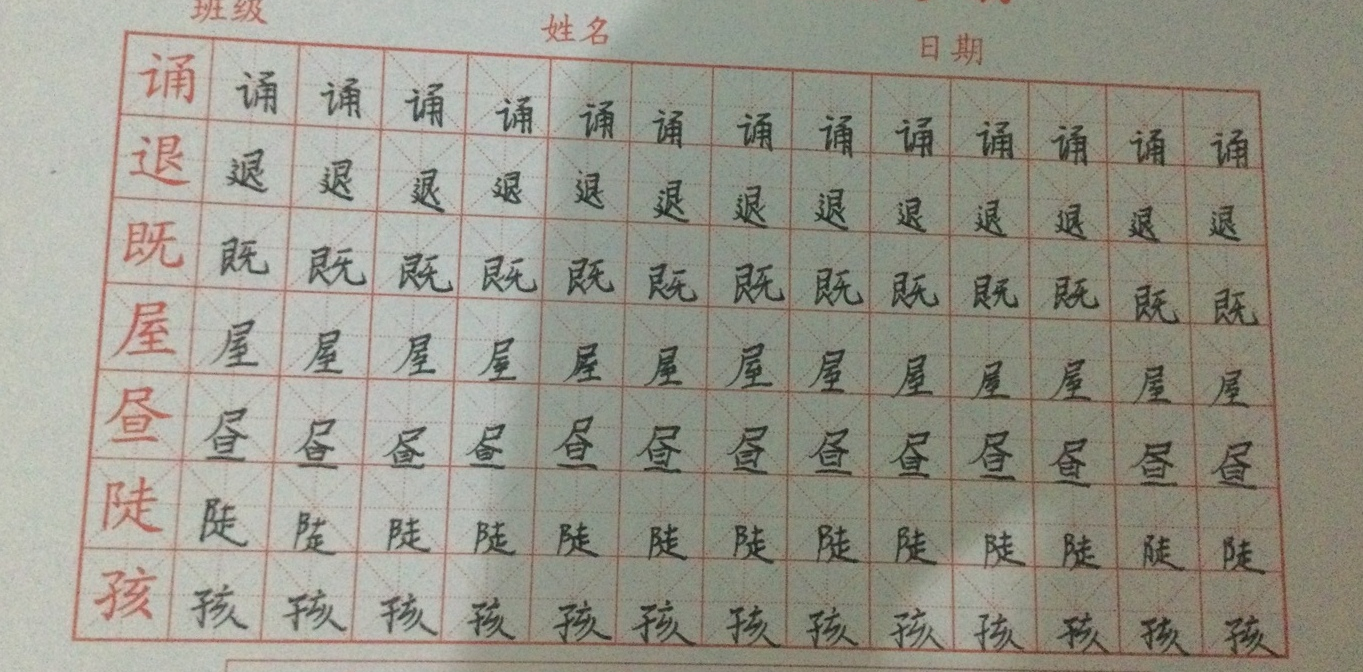 班级 姓名 日期
诵 诵 诵 诵 诵 诵 诵 诵 诵 诵 诵 诵 诵 诵
退 退 退 退 退 退 退 退 退 退 退 退 退 退
既 既 既 既 既 既 既 既 既 既 既 既 既 既
屋 屋 屋 屋 屋 屋 屋 屋 屋 屋 屋 屋 屋 屋
昼 昼 昼 昼 昼 昼 昼 昼 昼 昼 昼 昼 昼 昼
陡 陡 陡 陡 陡 陡 陡 陡 陡 陡 陡 陡 陡 陡
孩 孩 孩 孩 孩 孩 孩 孩 孩 孩 孩 孩 孩 孩